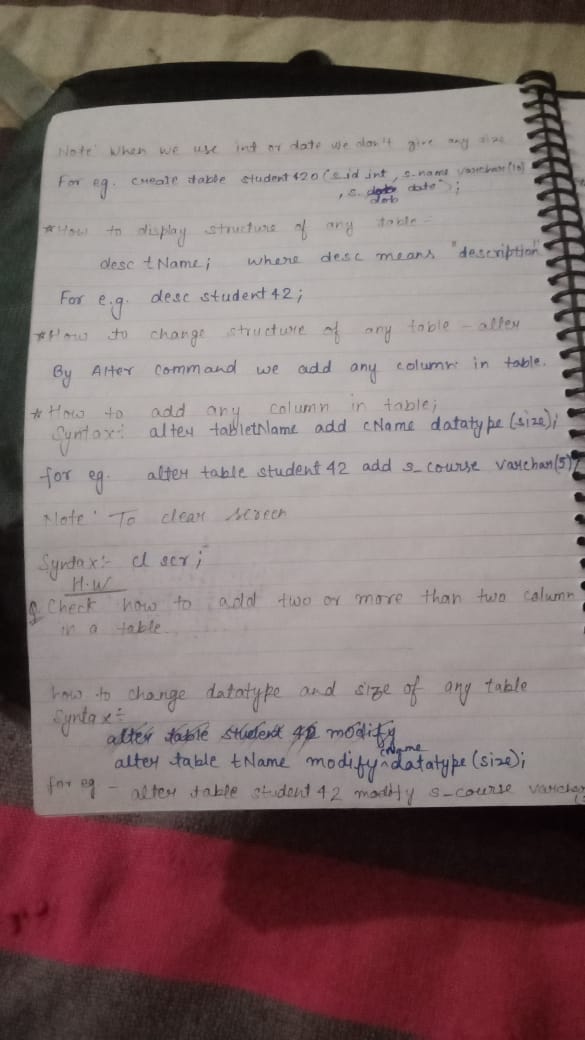 Note: When we use int or date we don't give any size
For eg. create table student420 (s_id int, s_name varchar(10)
, s_dob date);
* How to display structure of any table -
desc tName; where desc means "description"
For e.g. desc student42;
* How to change structure of any table - alter
By Alter command we add any column in table.
* How to add any column in table;
Syntax: alter tabletName add cName datatype (size);
for eg. alter table student 42 add s_course varchar(5);
Note: To clear screen
Syntax:- cl scr;
H.W
Q. Check how to add two or more than two column
in a table
how to change datatype and size of any table
Syntax:-
alter table student 42 modify
alter table tName modify cName datatype (size);
for eg - alter table student 42 modify s_course varchar